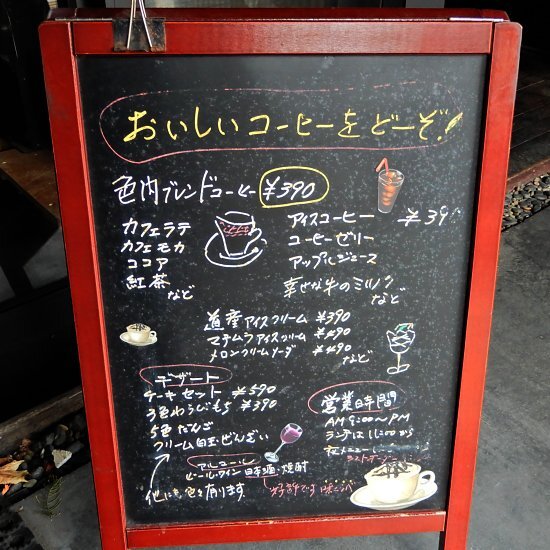 おいしいコーヒーをどーぞ!
色内ブレンドコーヒー ¥390
カフェラテ
カフェモカ
ココア
紅茶
など
アイスコーヒー ¥39
コーヒーゼリー
アップルジュース
幸せな牛のミルク
など
道産アイスクリーム ¥390
マチムラアイスクリーム ¥490
メロンクリームソーダ ¥490
など
デザート
ケーキセット ¥590
3色わらびもち ¥390
5色だんご
クリーム白玉ぜんざい
他にも色々有ります
アルコール
ビール・ワイン 日本酒・焼酎
好評です
営業時間
AM 9:00〜PM
ランチは11:00から